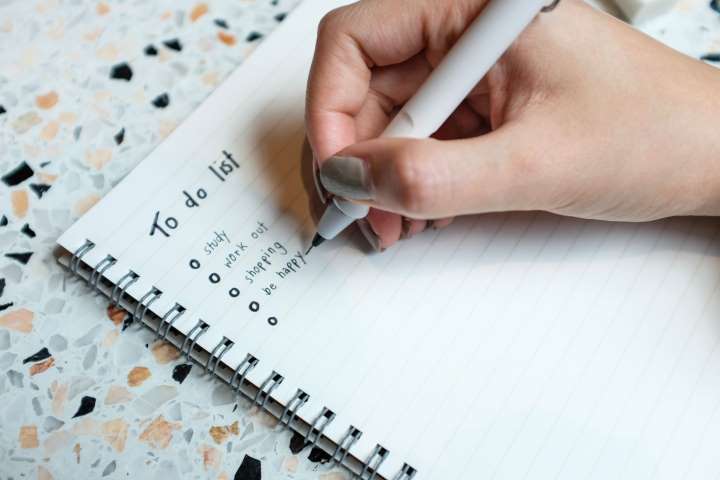 To do list
study
work out
shopping
be happy